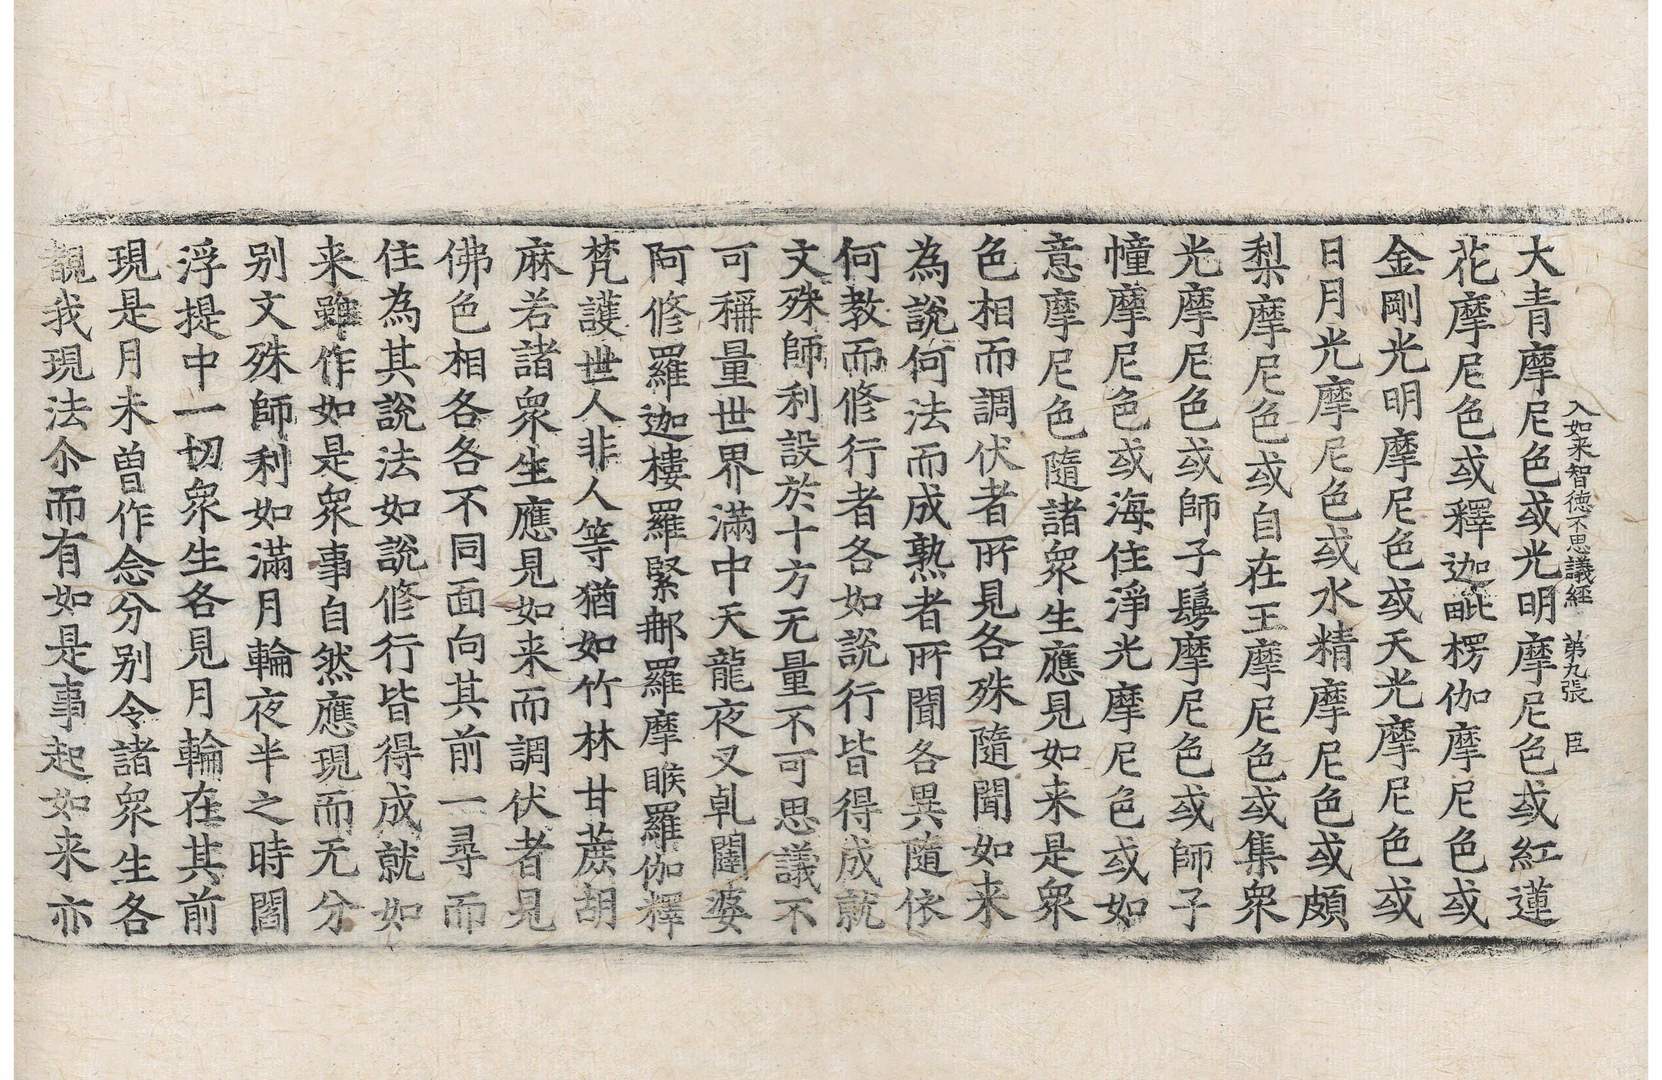 入如来智德不思議経 第九張 臣
大青摩尼色或光明摩尼色或紅蓮
花摩尼色或釋迦毗楞伽摩尼色或
金剛光明摩尼色或天光摩尼色或
日月光摩尼色或水精摩尼色或頗
梨摩尼色或自在王摩尼色或集衆
光摩尼色或師子鬘摩尼色或師子
幢摩尼色或海住淨光摩尼色或如
意摩尼色隨諸衆生應見如来是衆
色相而調伏者所見各殊隨聞如来
為說何法而成熟者所聞各異隨依
何教而修行者各如說行皆得成就
文殊師利設於十方无量不可思議不
可稱量世界滿中天龍夜叉乹闥婆
阿修羅迦樓羅緊那羅摩睺羅伽釋
梵護世人非人等猶如竹林甘蔗胡
麻若諸衆生應見如来而調伏者見
佛色相各各不同面向其前一尋而
住為其說法如說修行皆得成就如
来雖作如是衆事自然應現而无分
别文殊師利如滿月輪夜半之時閻
浮提中一切衆生各見月輪在其前
現是月未曽作念分别令諸衆生各
覩我現法尒而有如是事起如来亦